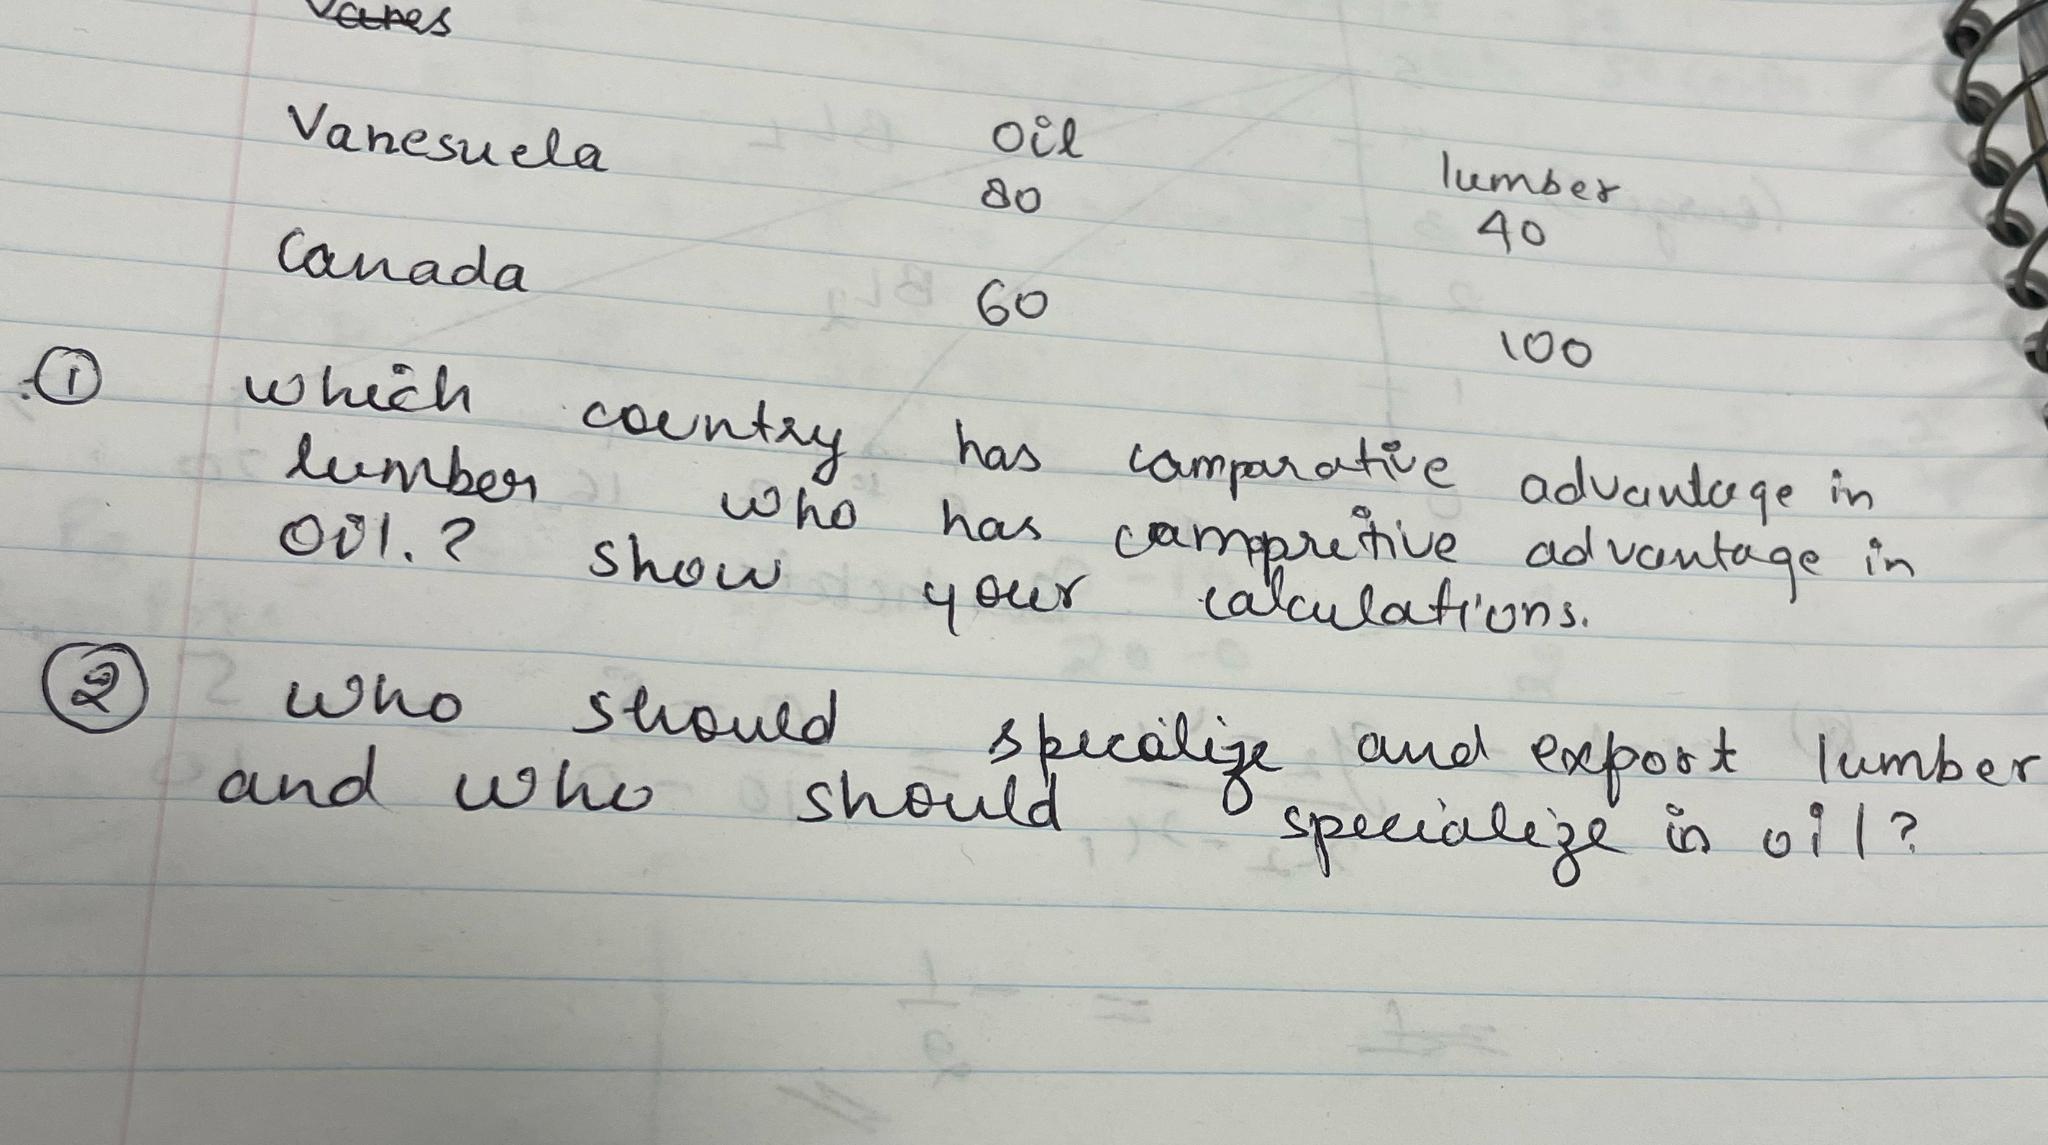 Vanes
Vanesuela Oil lumber
80 40
Canada 60 100
① which country has comparative advantage in
lumber who has camppretive advantage in
Oil.? show your calculations.
② who should specalize and export lumber
and who should specialize in oil?